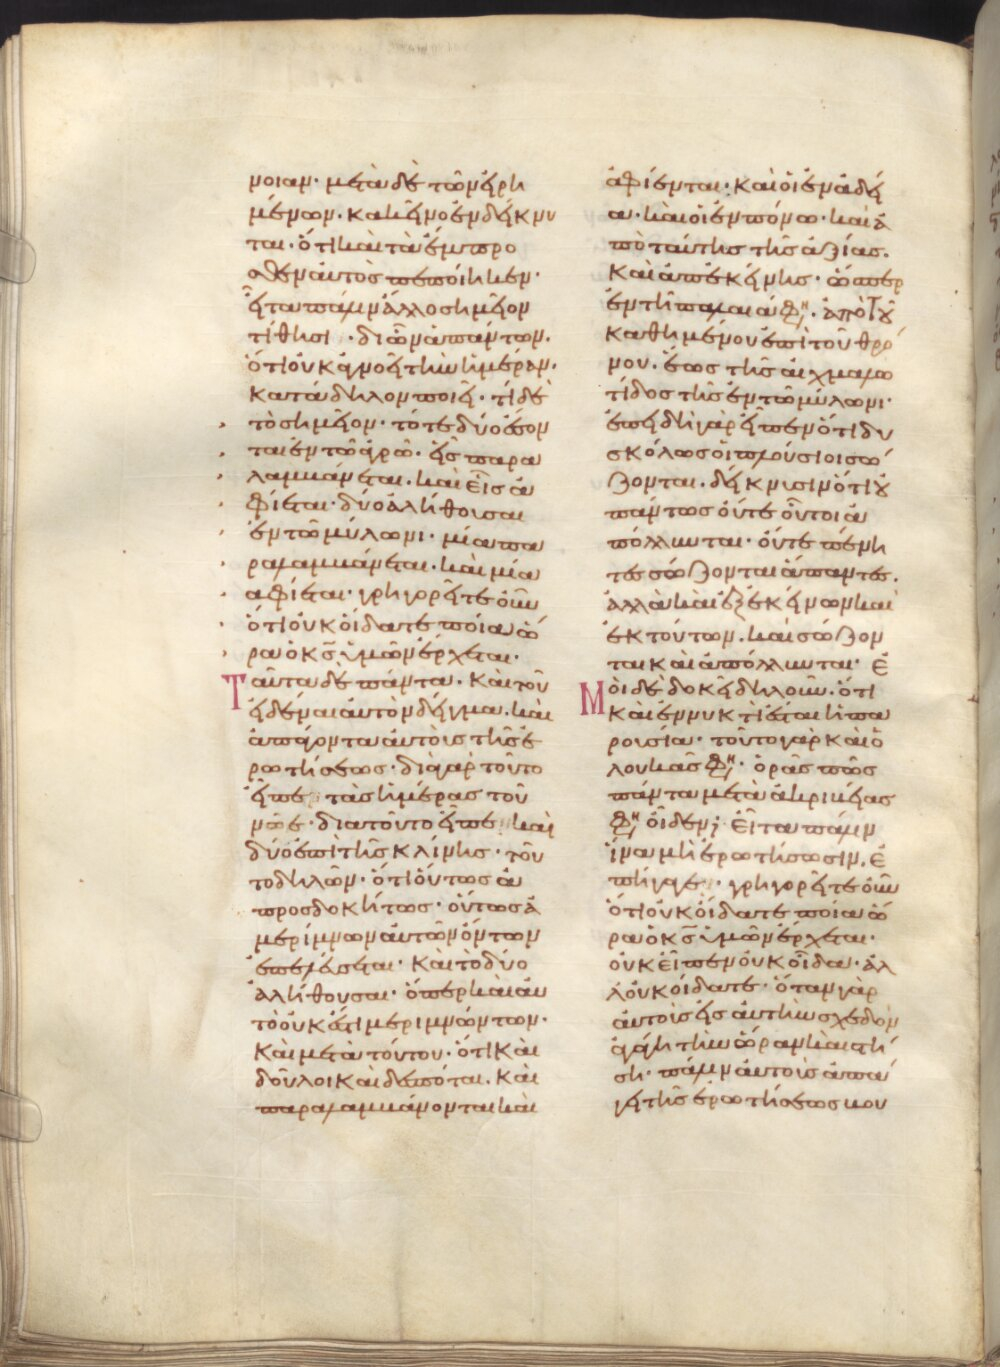 νοιαν· μετὰ δὲ τῶν εἰρη
μένων. κακεῖνο ἐνδείκνυ
ται· ὅτι καὶ τὰ ἔμπρο
σθεν αὐτὸς πεποίηκεν·
εἶτα πάλιν ἄλλο σημεῖον
τίθησι· δι ὧν ἁπάντων.
ὅτι οὐκ ἀγνοεῖ τὴν ἡμέραν.
κατάδηλον ποιεῖ· τί δὲ
τὸ σημεῖον· τότε δύο ἔσον
ται ἐν τῶ ἀγρῶ· εἷς παρα
λαμβάνεται. καὶ εἷς ἀ
φίεται· δύο ἀλήθουσαι
ἐν τῶ μύλωνι· μία πα
ραλαμβάνεται. καὶ μία
ἀφίεται· γρηγορεῖτε οὖν
ὅτι οὐκ οἴδατε ποία ὥ
ρα ὁ κς̅ ὑμῶν ἔρχεται·
Ταῦτα δὲ πάντα. καὶ τοῦ
εἰδέναι αὐτὸν δεῖγμα. καὶ
ἀπάγοντα αὐτοὺς τῆς ἐ
ρωτήσεως· διὰ γὰρ τοῦτο
εἶπε τὰς ἡμέρας τοῦ
νῶε· διατοῦτο εἶπε καὶ
δύο ἐπὶ τῆς κλίνης· τοῦ
το δηλῶν· ὅτι οὕτως ἀ
προσδοκήτως· οὕτως ἀ
μερίμνων αὐτῶν ὄντων
ἐπελεύσεται· καὶ τὸ δύο
ἀλήθουσαι· ὅπερ καὶ αὐ
τὸ οὐκ ἔτι μεριμνώντων·
καὶ μετὰ τούτου· ὅτι καὶ
δοῦλοι καὶ δεσπόται. καὶ
παραλαμβάνονται καὶ
ἀφίενται· καὶ οἱ ἐν ἀδεί
α· καὶ οἱ ἐν πόνω· καὶ ἀ
πὸ ταύτης τῆς ἀξίας.
καὶ ἀπ ἐκείνης· ὥσπερ
ἐν τῆ παλαιᾶ φη· ἀπὸ τοῦ
καθημένου ἐπὶ τοῦ θρό
νου. ἕως τῆς αἰχμαλω
τίδος τῆς ἐν τῶ μύλωνι·
ἐπειδὴ γὰρ εἶπεν ὅτι δυ
σκόλως οἱ πλούσιοι σώ
ζονται. δείκνυσιν ὅτι οὐ
πάντως οὔτε οὗτοι ἀ
πόλλυνται· οὔτε πένη
τες σώζονται ἅπαντες.
ἀλλὰ καὶ ἐξ ἐκείνων καὶ
ἐκ τούτων. καὶ σώζον
ται καὶ ἀπόλλυνται· Ἐ
Μοὶ δὲ δοκεῖ δηλοῦν. ὅτι
καὶ ἐν νυκτὶ ἔσται ἡ πα
ρουσία· τοῦτο γὰρ καὶ ὁ
λουκᾶς φη· ὁρᾶς πῶς
πάντα μετὰ ἀκριβείας
φη οἶδεν; εἶτα πάλιν
ἵνα μὴ ἐρωτήσωσιν. ἐ
πήγαγε· γρηγορεῖτε οὖν
ὅτι οὐκ οἴδατε ποία ὥ
ρα ὁ κς̅ ὑμῶν ἔρχεται·
οὐκ εἶπεν οὐκ οἶδα· ἀλ
λ οὐκ οἴδατε· ὅταν γὰρ
αὐτοὺς εἰς αὐτὴν σχεδὸν
ἀγάγη τὴν ὥραν καὶ στή
ση· πάλιν αὐτοὺς ἀπά
γει τῆς ἐρωτήσεως που